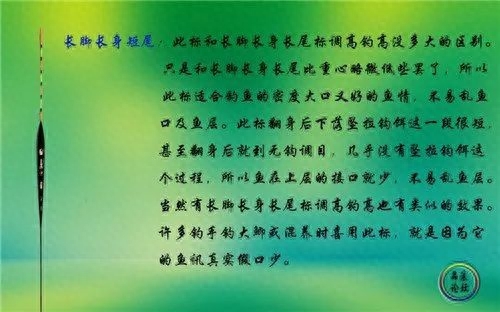 长脚长身短尾：此标和长脚长身长尾标调高钓高没多大的区别。
只是和长脚长身长尾比重心略微低些罢了，所以
此标适合钓鱼的密度大口又好的鱼情，不易乱鱼
口及鱼层。此标翻身后下落坠拉钩饵这一段很短，
甚至翻身后就到无钩调目，几乎没有坠拉钩饵这
个过程，所以鱼在上层的接口就少，不易乱鱼层。
当然有长脚长身长尾标调高钓高也有类似的效果。
许多钓手钓大鲫或混养时喜用此标，就是因为它
的鱼讯真实假口少。
论坛